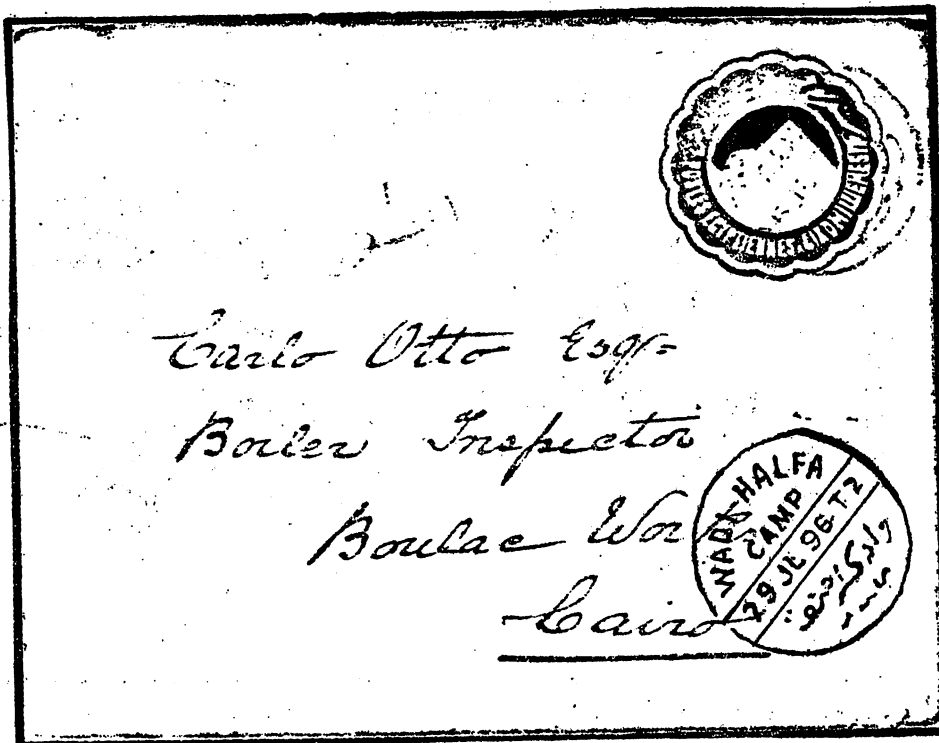 POSTES EGYPTIENNES
Carlo Otto Esqr
Boiler Inspector
Boulac
Cairo
WADI-HALFA
CAMP
29 JE 96 T2